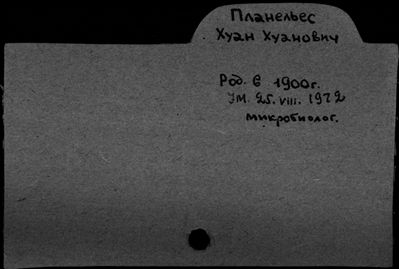 Планельес
Хуан Хуанович
Род. в 1900г.
Ум. 25.VIII. 1972
микробиолог.